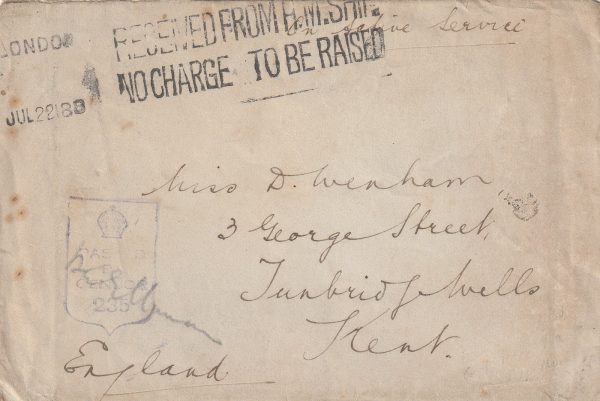 LONDON
JUL 22 18
RECEIVED FROM H.M. SHIP
NO CHARGE TO BE RAISED
On Active Service
Miss D. Wenham
3 George Street,
Tunbridge Wells
Kent.
England
PASSED
BY
CENSOR
235